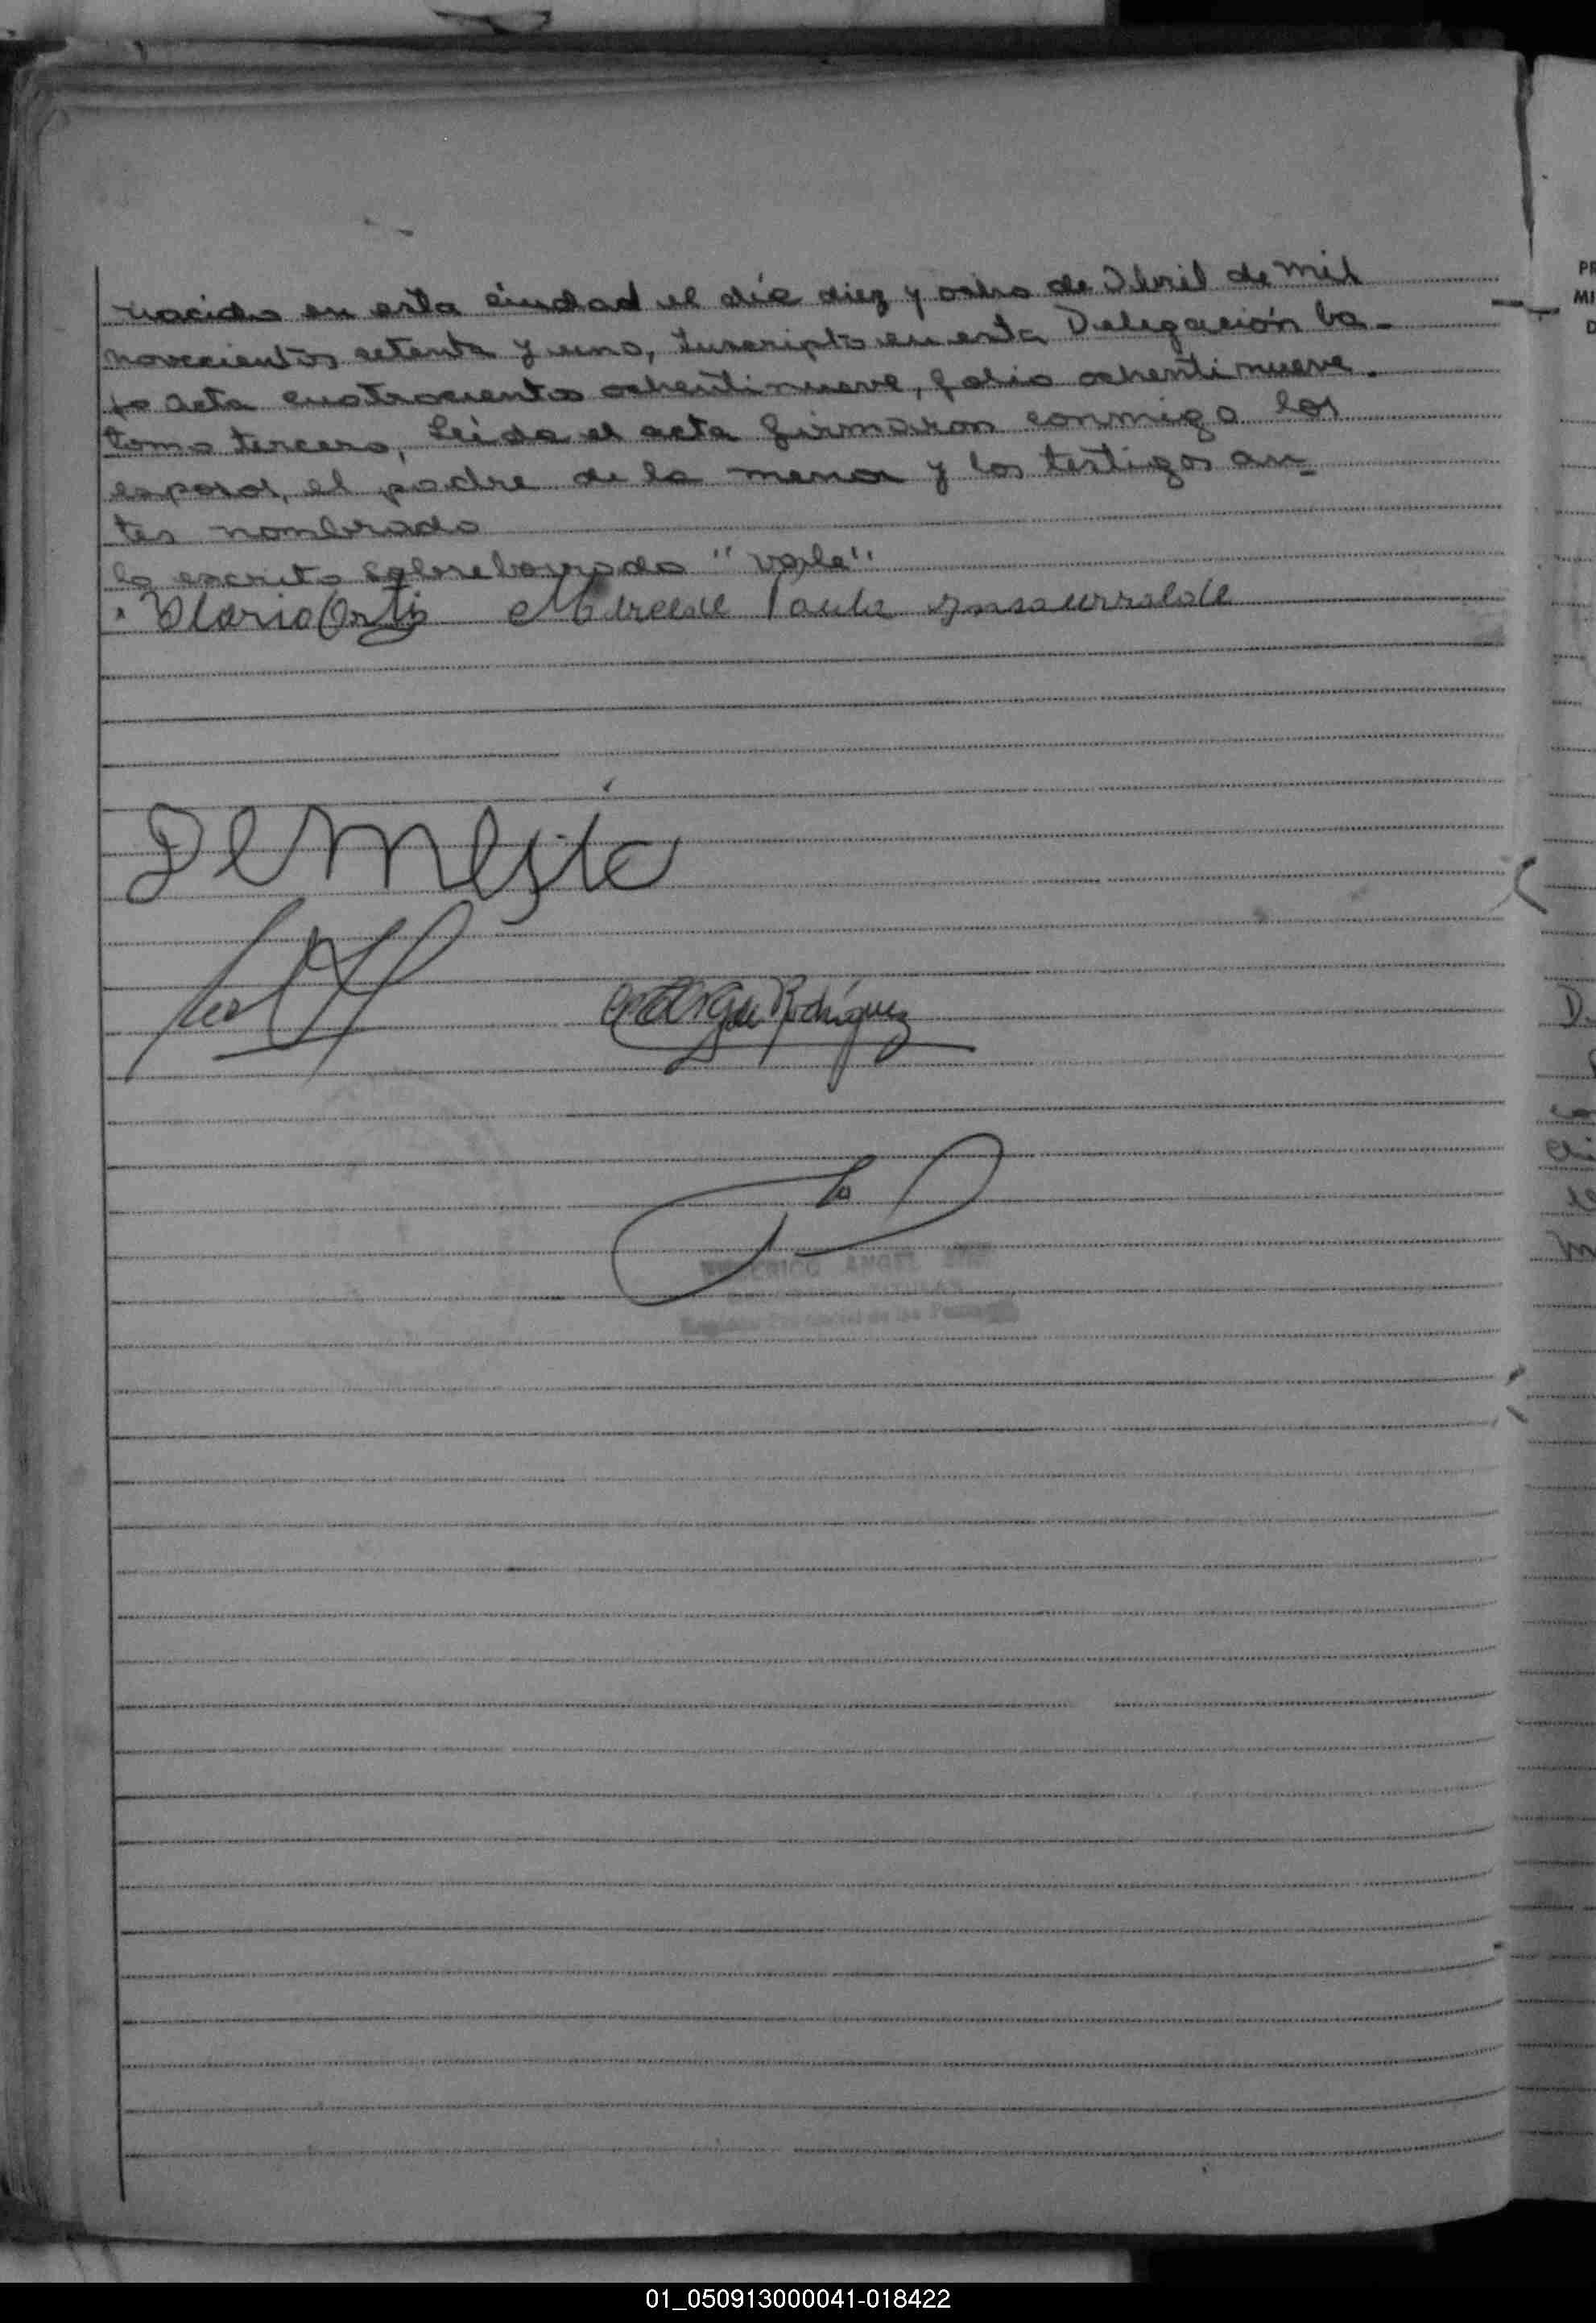 nacido en esta ciudad el día diez y ocho de Abril de mil
novecientos setenta y uno, Inscripto en esta Delegación ba-
jo acta cuatrocientos ochentinueve, folio ochentinueve.
tomo tercero, Leída el acta firmaron conmigo los
esposos, el padre de la menor y los testigos an-
tes nombrado
lo escrito sobreborrado "vale"
Ilario Ortis Mercede Paula Insaurralde
Rodríguez
ANGEL
de las Personas
01_050913000041-018422